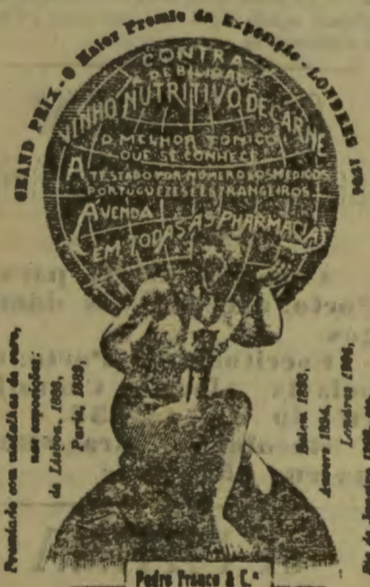 GRAND PRIX - O Maior Premio da Exposição - LONDRES
CONTRA
A DEBILIDADE
VINHO NUTRITIVO DE CARNE
O MELHOR TONICO
QUE SE CONHECE
ATESTADO POR NUMEROSOS MEDICOS
PORTUGUEZES E ESTRANGEIROS
Á VENDA
EM TODAS AS PHARMACIAS
Premiado com medalhas de ouro,
nas exposições:
de Lisboa, 1888,
Paris, 1889,
1893,
Anvers 1894,
Londres 1904,
Rio de Janeiro 1908,
Pedro Franco & C.ª